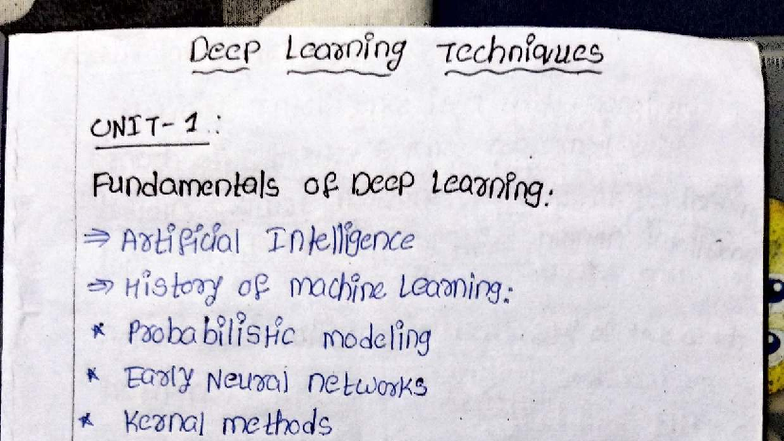 Deep Learning Techniques
UNIT-1:
Fundamentals of Deep Learning:
⇒ Artificial Intelligence
⇒ History of machine Learning:
* Probabilistic modeling
* Early Neural networks
* Kernal methods